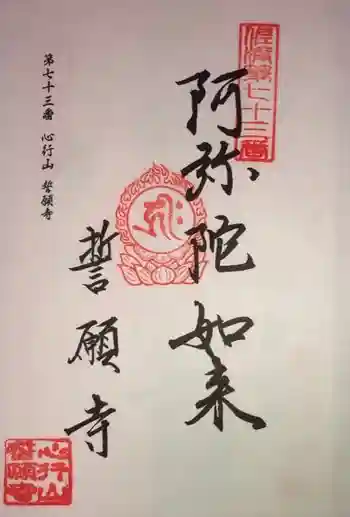 第七十三番
阿弥陀如来
ह्रीः
誓願寺
第七十三番　心行山　誓願寺
心行山
誓願寺